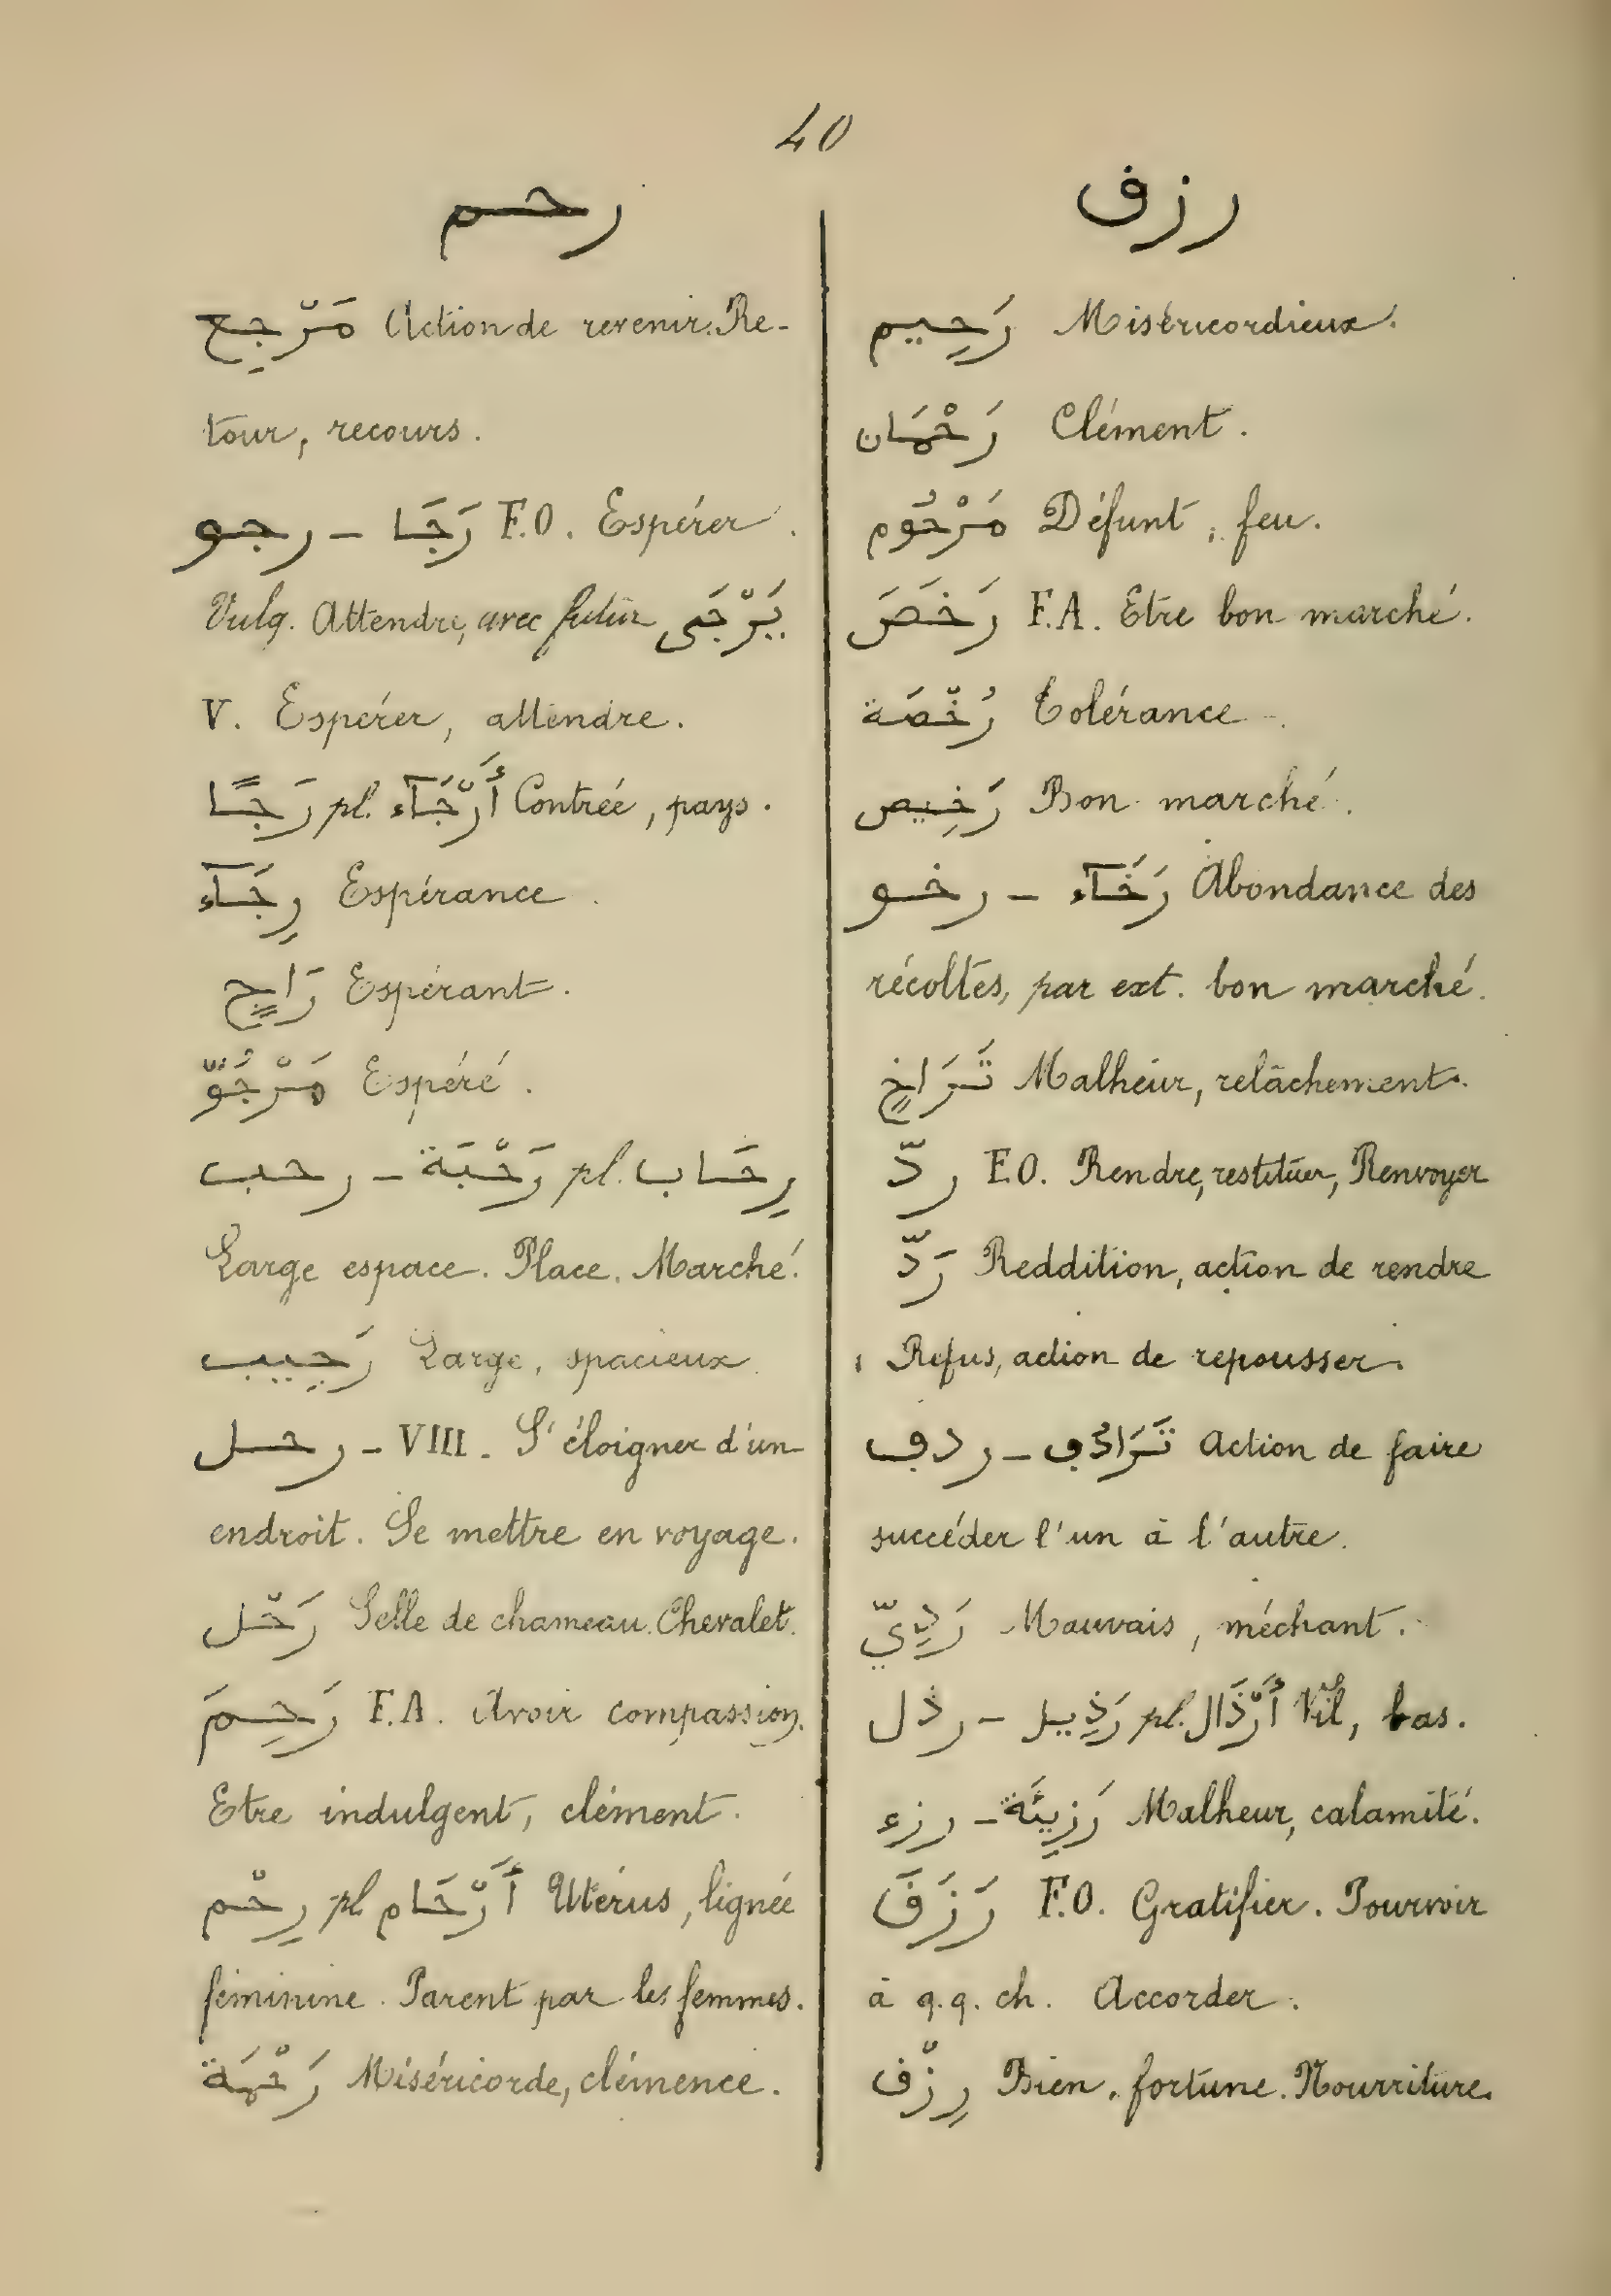 40
رحم
رزق
مَرْجِع Action de revenir. Re-
tour, recours.
رجو – رَجَا F.O. Espérer.
Vulg. Attendre, avec futur يَرْجَى
V. Espérer, attendre.
رَجًا pl. أَرْجَآء Contrée, pays.
رِجَآء Espérance.
رَاجٍ Espérant.
مَرْجُوّ Espéré.
رحب – رَحْبَة pl. رِحَاب
Large espace. Place. Marché.
رَحِيب Large, spacieux.
رحل – VIII. S'éloigner d'un
endroit. Se mettre en voyage.
رَحْل Selle de chameau. Chevalet.
رَحِمَ F.A. Avoir compassion.
Etre indulgent, clément.
رِحْم pl أَرْحَام Utérus, lignée
féminine. Parent par les femmes.
رَحْمَة Miséricorde, clémence.
رَحِيم Miséricordieux.
رَحْمَان Clément.
مَرْحُوم Défunt, feu.
رَخَصَ F.A. Etre bon marché.
رُخْصَة Tolérance.
رَخِيص Bon marché.
رخو – رَخَآء Abondance des
récoltes, par ext. bon marché.
تَرَاخٍ Malheur, relâchement.
ردّ F.O. Rendre, restituer, Renvoyer
رَدّ Reddition, action de rendre
Refus, action de repousser.
ردف – تَرَادُف Action de faire
succéder l'un à l'autre.
رَدِيّ Mauvais, méchant.
رذل – رَذِيل pl. أَرْذَال Vil, bas.
رزء – رَزِيئَة Malheur, calamité.
رَزَقَ F.O. Gratifier. Pourvoir
à q.q. ch. Accorder.
رِزْق Bien, fortune. Nourriture.